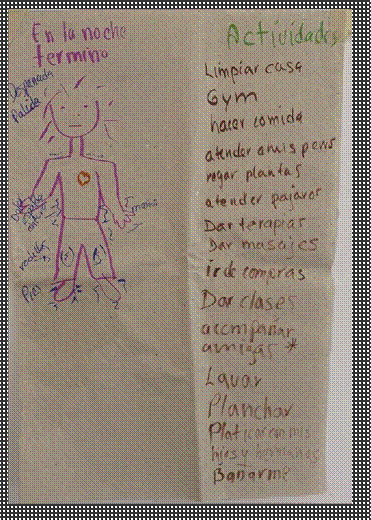 En la noche
termino
Despeinada
Palida
manos
rodillas
Pies
Actividades
Limpiar casa
Gym
hacer comida
atender a mis perros
regar plantas
atender pajaros
Dar terapias
Dar masajes
ir de compras
Dar clases
acompañar
amigas *
Lavar
Planchar
Platicar con mis
hijos y hermanas
Bañarme